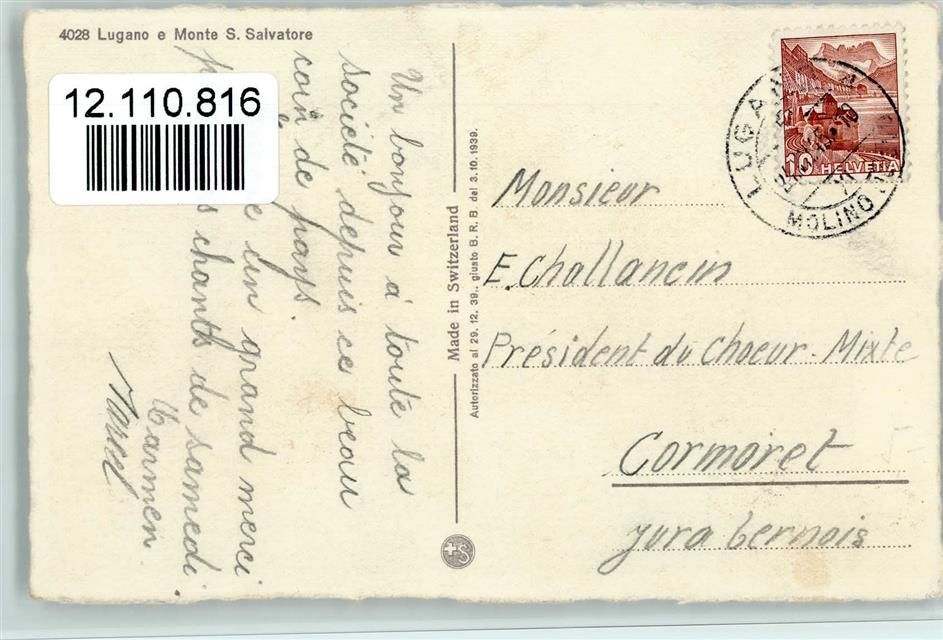 4028 Lugano e Monte S. Salvatore
12.110.816
Un bonjour à toute la
société depuis ce beau
coin de pays.
un grand merci
chants de samedi
Carmen
Marcel
Made in Switzerland
Autorizzato al 29. 12. 39., giusto B. R. B. del 3. 10. 1939.
LUGANO
MOLINO
10 HELVETIA
Monsieur
E. Challancin
Président du Choeur Mixte
Cormoret
Jura bernois